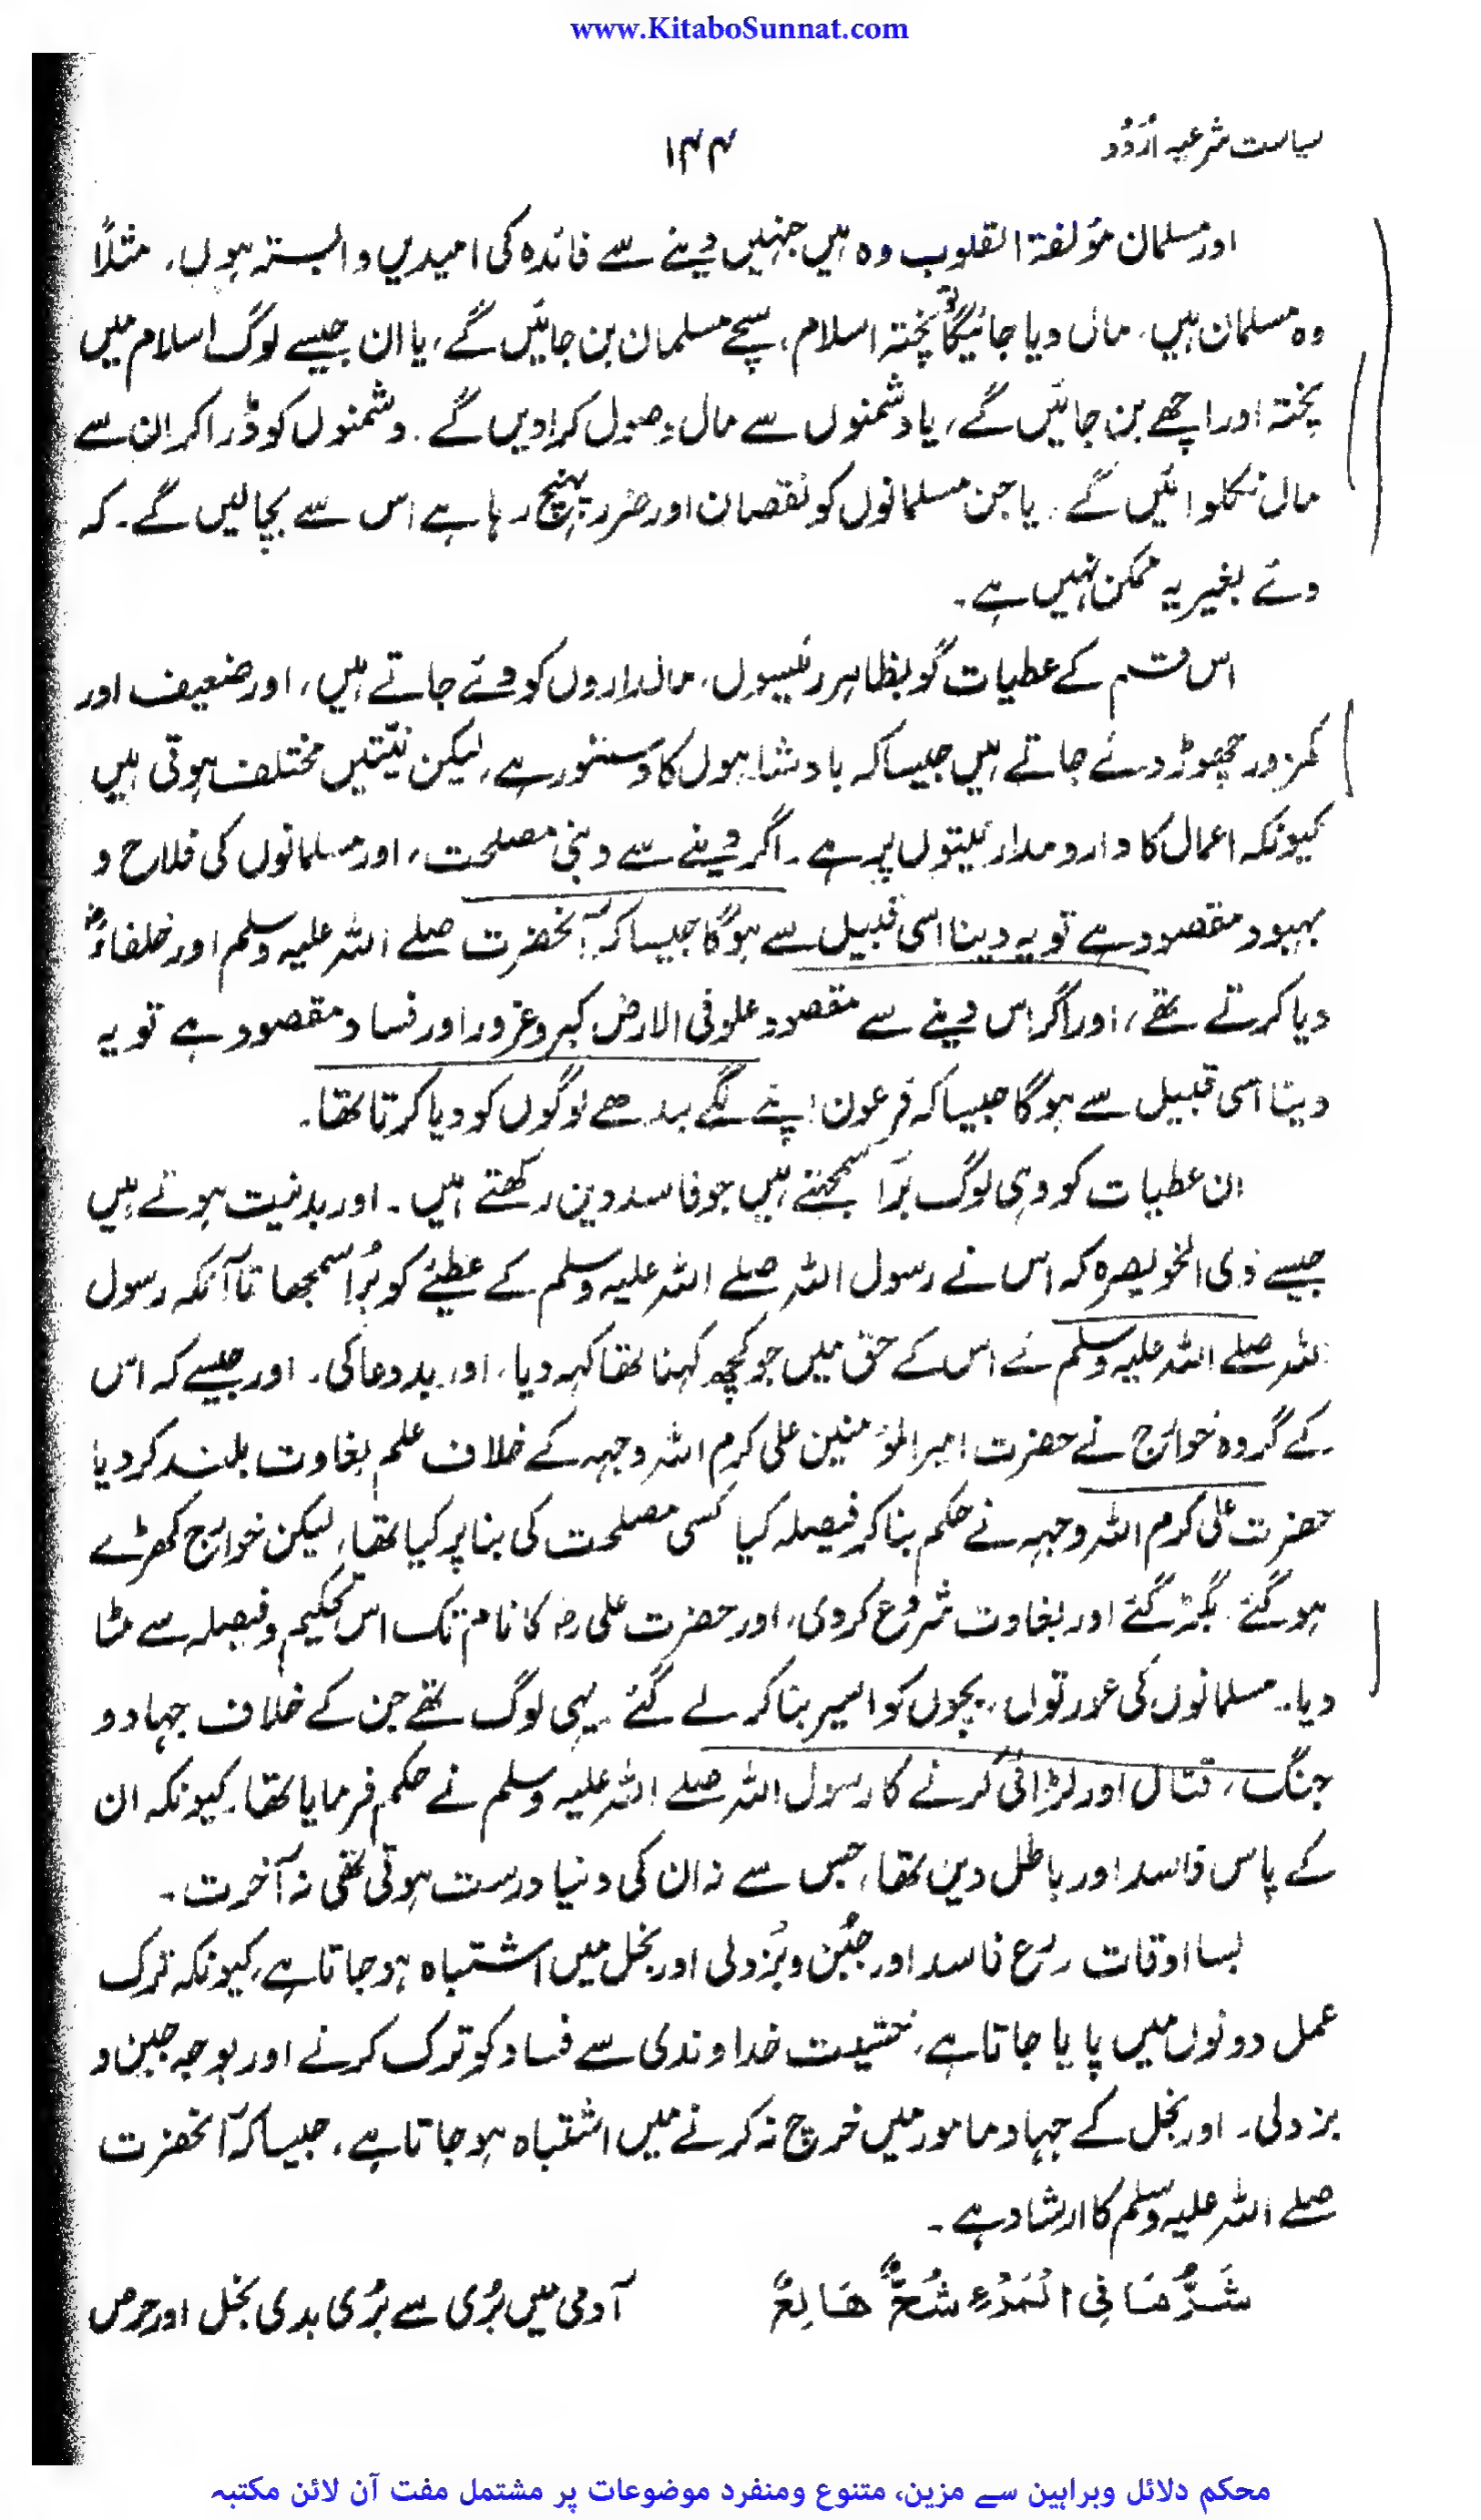 www.KitaboSunnat.com
سیاست شرعیہ اُردُو
۱۴۴
اور مسلمان مؤلفۃ القلوب وہ ہیں جنہیں دینے سے فائدہ کی امیدیں وابستہ ہوں، مثلاً
وہ مسلمان ہیں، مال دیا جائیگا تو پختہ اسلام، سچے مسلمان بن جائیں گے، یا ان جیسے لوگ اسلام میں
پختہ اور اچھے بن جائیں گے، یا دشمنوں سے مال وصول کرادیں گے۔ دشمنوں کو ڈرا کر ان سے
مال نکلوائیں گے، یا جن مسلمانوں کو نقصان اور ضرر پہنچ رہا ہے اس سے بچالیں گے۔ کہ
دئے بغیر یہ ممکن نہیں ہے۔
اس قسم کے عطیات گو بظاہر رئیسوں، مالداروں کو دئے جاتے ہیں، اور ضعیف اور
کمزور چھوڑ دئے جاتے ہیں جیسا کہ بادشاہوں کا دستور ہے، لیکن نیّتیں مختلف ہوتی ہیں
کیونکہ اعمال کا دارومدار نیتوں پر ہے۔ اگر دینے سے دینی مصلحت، اور مسلمانوں کی فلاح و
بہبود مقصود ہے تو یہ دینا اسی قبیل سے ہوگا جیسا کہ آنحضرت صلے اللہ علیہ وسلم اور خلفاءؓ
دیا کرتے تھے، اور اگر اس دینے سے مقصود علو فی الارض کبر و غرور اور فساد مقصود ہے تو یہ
دینا اسی قبیل سے ہوگا جیسا کہ فرعون اپنے لگے بندھے لوگوں کو دیا کرتا تھا۔
ان عطیات کو وہی لوگ بُرا سمجھتے ہیں جو فاسد دین رکھتے ہیں۔ اور بدنیت ہوتے ہیں
جیسے ذی الخویصرہ کہ اس نے رسول اللہ صلے اللہ علیہ وسلم کے عطئے کو بُرا سمجھا تا آنکہ رسول
اللہ صلے اللہ علیہ وسلم نے اس کے حق میں جو کچھ کہنا تھا کہہ دیا، اور بددعا کی۔ اور جیسے کہ اس
کے گروہ خوارج نے حضرت امیرالمؤمنین علی کرم اللہ وجہہ کے خلاف علم بغاوت بلند کر دیا
حضرت علی کرم اللہ وجہہ نے حکم بنا کر فیصلہ کیا کسی مصلحت کی بنا پر کیا تھا، لیکن خوارج کھڑے
ہو گئے، بگڑ گئے اور بغاوت شروع کر دی، اور حضرت علی رضہ کا نام تک اس تحکیم و فیصلہ سے مٹا
دیا۔ مسلمانوں کی عورتوں، بچوں کو اسیر بنا کر لے گئے۔ یہی لوگ تھے جن کے خلاف جہاد و
جنگ، قتال اور لڑائی کرنے کا رسول اللہ صلے اللہ علیہ وسلم نے حکم فرمایا تھا، کیونکہ ان
کے پاس فاسد اور باطل دین تھا، جس سے نہ ان کی دنیا درست ہوتی تھی نہ آخرت۔
بسا اوقات ورع فاسد اور جُبن و بُزدلی اور بخل میں اشتباہ ہو جاتا ہے، کیونکہ ترک
عمل دونوں میں پایا جاتا ہے، خشیت خداوندی سے فساد کو ترک کرنے اور بوجہ جبن و
بزدلی۔ اور بخل کے جہاد مامور میں خرچ نہ کرنے میں اشتباہ ہو جاتا ہے، جیسا کہ آنحضرت
صلے اللہ علیہ وسلم کا ارشاد ہے۔
شَرُّ مَا فِی الْمَرْءِ شُحٌّ هَالِعٌ
آدمی میں بُری سے بُری بدی بخل اور حرص
محکم دلائل وبراہین سے مزین، متنوع ومنفرد موضوعات پر مشتمل مفت آن لائن مکتبہ